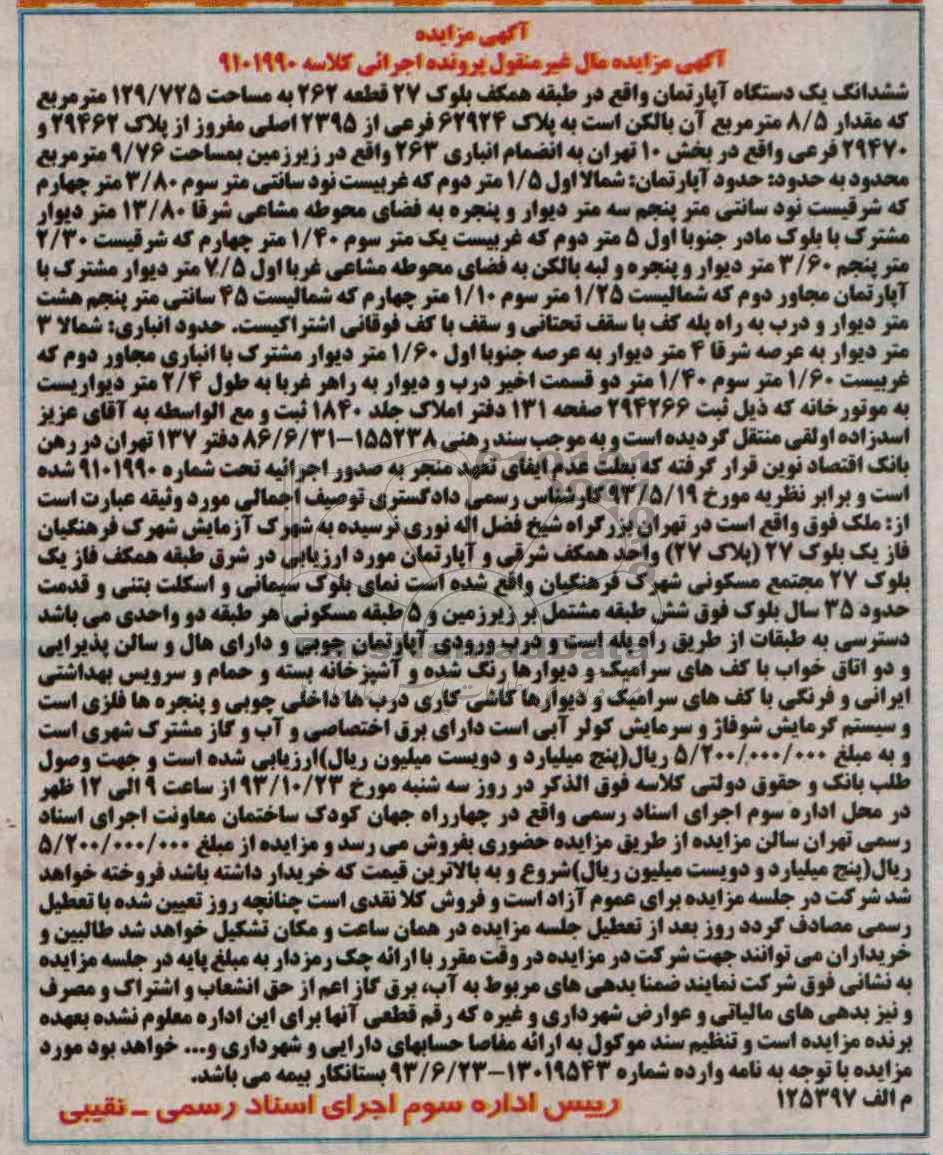 آگهی مزایده
آگهی مزایده مال غیر منقول پرونده اجرائی کلاسه ۹۱۰۱۹۹۰
ششدانگ یک دستگاه آپارتمان واقع در طبقه همکف بلوک ۲۷ قطعه ۲۶۲ به مساحت ۱۲۹/۷۲۵ مترمربع
که مقدار ۸/۵ مترمربع آن بالکن است به پلاک ۶۲۹۲۴ فرعی از ۲۳۹۵ اصلی مفروز از پلاک ۲۹۴۶۲ و
۲۹۴۷۰ فرعی واقع در بخش ۱۰ تهران به انضمام انباری ۲۶۳ واقع در زیرزمین بمساحت ۹/۷۶ مترمربع
محدود به حدود: حدود آپارتمان: شمالا اول ۱/۵ متر دوم که غربیست نود سانتی متر سوم ۳/۸۰ متر چهارم
که شرقیست نود سانتی متر پنجم سه متر دیوار و پنجره به فضای محوطه مشاعی شرقا ۱۳/۸۰ متر دیوار
مشترک با بلوک مادر جنوبا اول ۵ متر دوم که غربیست یک متر سوم ۱/۴۰ متر چهارم که شرقیست ۲/۳۰
متر پنجم ۳/۶۰ متر دیوار و پنجره و لبه بالکن به فضای محوطه مشاعی غربا اول ۷/۵ متر دیوار مشترک با
آپارتمان مجاور دوم که شمالیست ۱/۲۵ متر سوم ۱/۱۰ متر چهارم که شمالیست ۴۵ سانتی متر پنجم هشت
متر دیوار و درب به راه پله کف با سقف تحتانی و سقف با کف فوقانی اشتراکیست. حدود انباری: شمالا ۳
متر دیوار به عرصه شرقا ۴ متر دیوار به عرصه جنوبا اول ۱/۶۰ متر دیوار مشترک با انباری مجاور دوم که
غربیست ۱/۶۰ متر سوم ۱/۴۰ متر دو قسمت اخیر درب و دیوار به راهر غربا به طول ۲/۴ متر دیواریست
به موتورخانه که ذیل ثبت ۲۹۴۲۶۶ صفحه ۱۳۱ دفتر املاک جلد ۱۸۴۰ ثبت و مع الواسطه به آقای عزیز
اسدزاده اولقی منتقل گردیده است و به موجب سند رهنی ۱۵۵۲۳۸-۸۶/۶/۳۱ دفتر ۱۳۷ تهران در رهن
بانک اقتصاد نوین قرار گرفته که بعلت عدم ایفای تعهد منجر به صدور اجرائیه تحت شماره ۹۱۰۱۹۹۰ شده
است و برابر نظریه مورخ ۹۳/۵/۱۹ کارشناس رسمی دادگستری توصیف اجمالی مورد وثیقه عبارت است
از: ملک فوق واقع است در تهران بزرگراه شیخ فضل اله نوری نرسیده به شهرک آزمایش شهرک فرهنگیان
فاز یک بلوک ۲۷ (پلاک ۲۷) واحد همکف شرقی و آپارتمان مورد ارزیابی در شرق طبقه همکف فاز یک
بلوک ۲۷ مجتمع مسکونی شهرک فرهنگیان واقع شده است نمای بلوک سیمانی و اسکلت بتنی و قدمت
حدود ۳۵ سال بلوک فوق شش طبقه مشتمل بر زیرزمین و ۵ طبقه مسکونی هر طبقه دو واحدی می باشد
دسترسی به طبقات از طریق راه پله است و درب ورودی آپارتمان چوبی و دارای هال و سالن پذیرایی
و دو اتاق خواب با کف های سرامیک و دیوارها رنگ شده و آشپزخانه بسته و حمام و سرویس بهداشتی
ایرانی و فرنگی با کف های سرامیک و دیوارها کاشی کاری درب ها داخلی چوبی و پنجره ها فلزی است
و سیستم گرمایش شوفاژ و سرمایش کولر آبی است دارای برق اختصاصی و آب و گاز مشترک شهری است
و به مبلغ ۵/۲۰۰/۰۰۰/۰۰۰ ریال(پنج میلیارد و دویست میلیون ریال)ارزیابی شده است و جهت وصول
طلب بانک و حقوق دولتی کلاسه فوق الذکر در روز سه شنبه مورخ ۹۳/۱۰/۲۳ از ساعت ۹ الی ۱۲ ظهر
در محل اداره سوم اجرای اسناد رسمی واقع در چهارراه جهان کودک ساختمان معاونت اجرای اسناد
رسمی تهران سالن مزایده از طریق مزایده حضوری بفروش می رسد و مزایده از مبلغ ۵/۲۰۰/۰۰۰/۰۰۰
ریال(پنج میلیارد و دویست میلیون ریال)شروع و به بالاترین قیمت که خریدار داشته باشد فروخته خواهد
شد شرکت در جلسه مزایده برای عموم آزاد است و فروش کلا نقدی است چنانچه روز تعیین شده با تعطیل
رسمی مصادف گردد روز بعد از تعطیل جلسه مزایده در همان ساعت و مکان تشکیل خواهد شد طالبین و
خریداران می توانند جهت شرکت در مزایده در وقت مقرر با ارائه چک رمزدار به مبلغ پایه در جلسه مزایده
به نشانی فوق شرکت نمایند ضمنا بدهی های مربوط به آب، برق گاز اعم از حق انشعاب و اشتراک و مصرف
و نیز بدهی های مالیاتی و عوارض شهرداری و غیره که رقم قطعی آنها برای این اداره معلوم نشده بعهده
برنده مزایده است و تنظیم سند موکول به ارائه مفاصا حسابهای دارایی و شهرداری و... خواهد بود مورد
مزایده با توجه به نامه وارده شماره ۱۳۰۱۹۵۴۳-۹۳/۶/۲۳ بستانکار بیمه می باشد.
م الف ۱۲۵۳۹۷
رییس اداره سوم اجرای اسناد رسمی ـ نقیبی